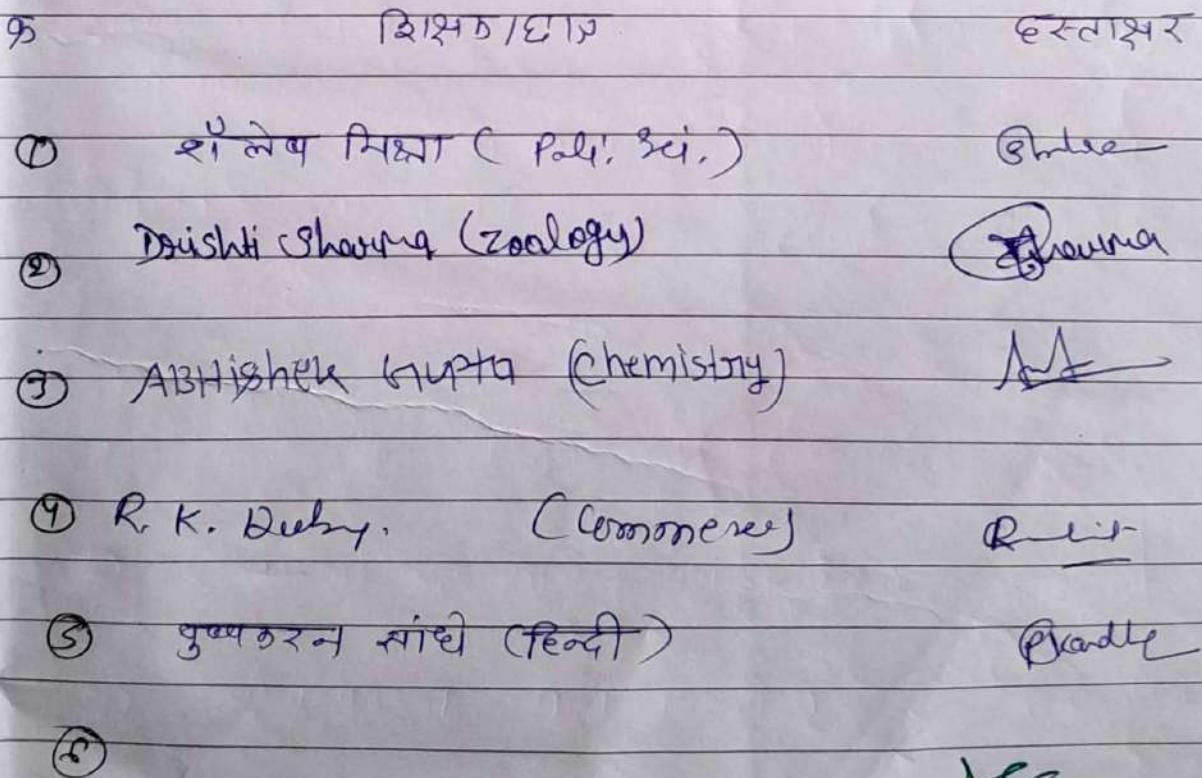 क्र शिक्षक/छात्र हस्ताक्षर
① शैलेष मिश्रा (Poli. Sci.)
② Drishti Sharma (Zoology) Sharma
③ ABHishek Gupta (Chemistry)
④ R. K. Dubey. (Commerce)
⑤ पुष्पकरन सांधे (हिन्दी)
⑥